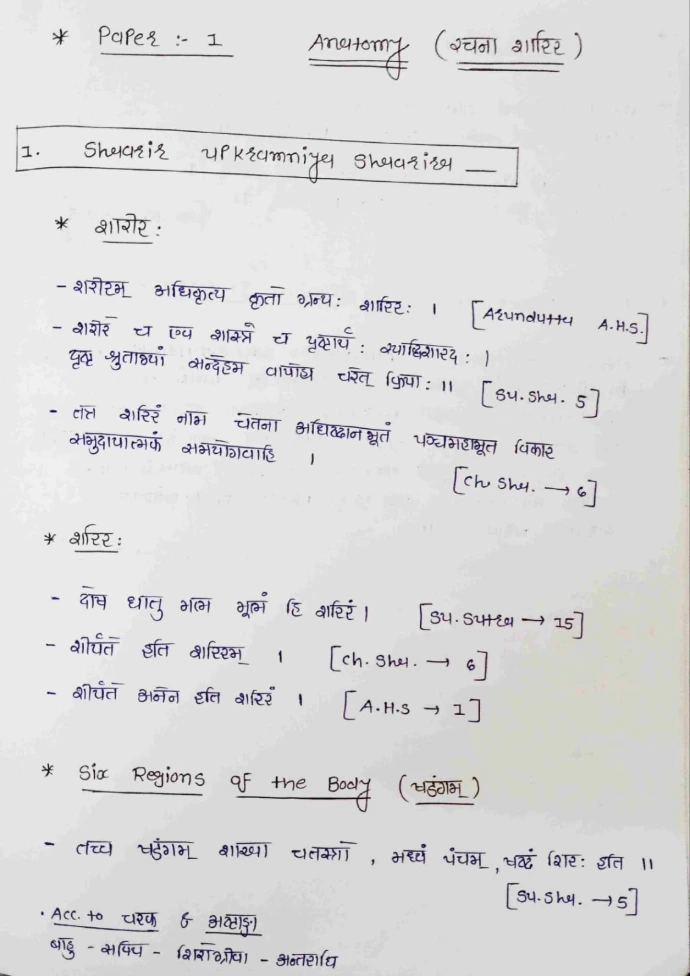 * Paper :- 1 Anatomy (रचना शारिर)
1. Shaarir upkramniya Shaarira —
* शारीर :
- शरीरम् अधिकृत्य कृतो ग्रन्थ: शारिर: । [Arundutta A.H.S.]
- शरीरे च एव शास्त्रे च दृष्टार्थ: स्याद्विशारद: ।
दृष्ट श्रुताभ्यां सन्देहम वापोह्य चरेत् क्रिया: ॥ [Su. Sha. 5]
- तत्र शरिरं नाम चेतना अधिष्ठानभूतं पञ्चमहाभूत विकार
समुदायात्मकं समयोगवाहि ।
[Ch Sha. → 6]
* शरिर:
- दोष धातु मल मूलं हि शरिरं । [Su. Sutra → 15]
- शीर्यते इति शरिरम् । [Ch. Sha. → 6]
- शीर्यते अनेन इति शरिरं । [A.H.S → 1]
* Six Regions of the Body (षडंगम्)
- तच्च षडंगम् शाखा चतस्त्रो , मध्यं पंचमं , षष्ठं शिर: इति ॥
[Su. Sha. → 5]
. Acc. to चरक & अष्टाङ्ग
बाहु - सक्थि - शिरोग्रीवा - अन्तराधि